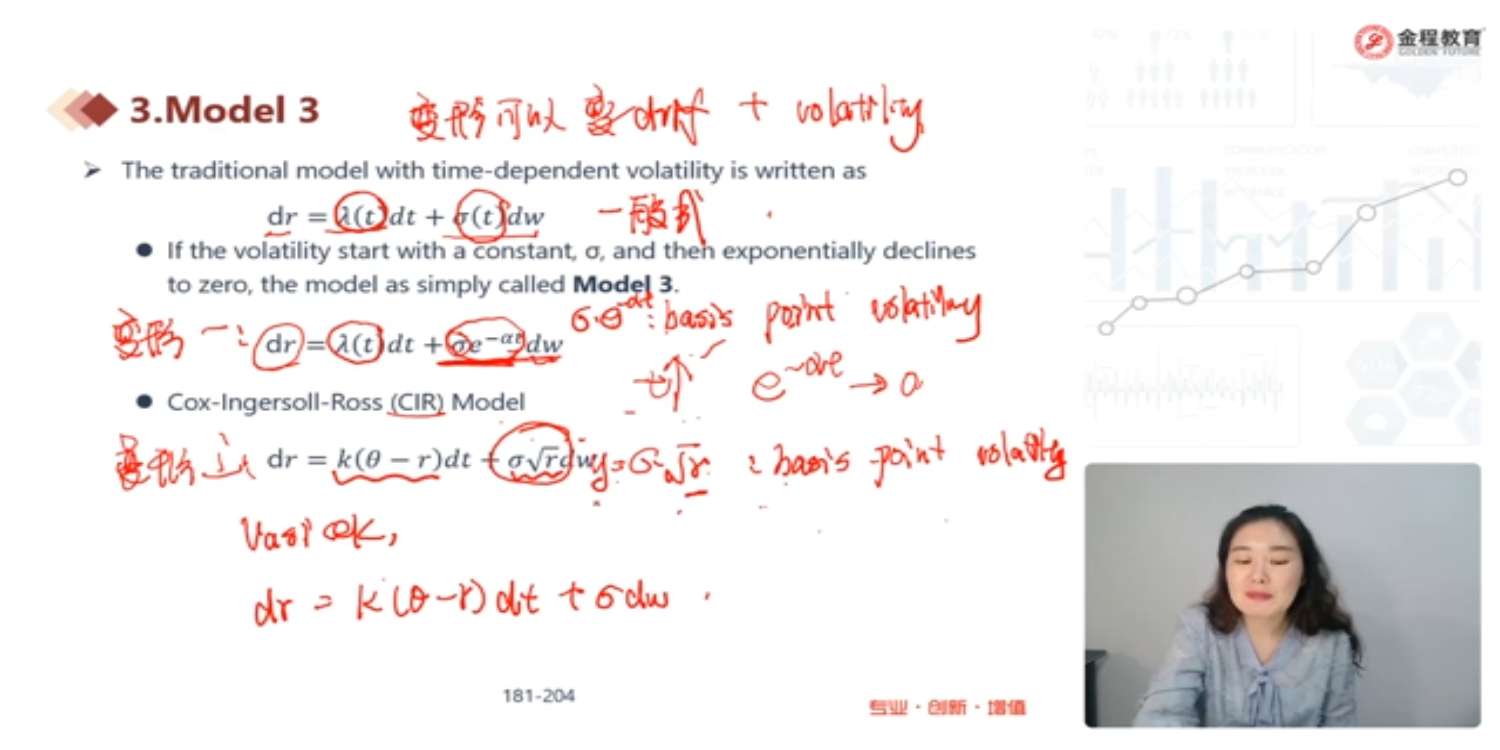 金程教育
GOLDEN FUTURE
3.Model 3
变形可以 变 drift + volatility
➤ The traditional model with time-dependent volatility is written as
dr = λ(t)dt + σ(t)dw 一般式
● If the volatility start with a constant, σ, and then exponentially declines
to zero, the model as simply called Model 3.
变形一: dr = λ(t)dt + σe^{-αt}dw σ·e^{-αt}: basis point volatility
t↑ e^{-αt} → 0
● Cox-Ingersoll-Ross (CIR) Model
变形二 dr = k(θ − r)dt + σ√r dw y = σ·√r : basis point volatility
Vasicek,
dr = k(θ-r)dt + σdw.
181-204
专业 · 创新 · 增值